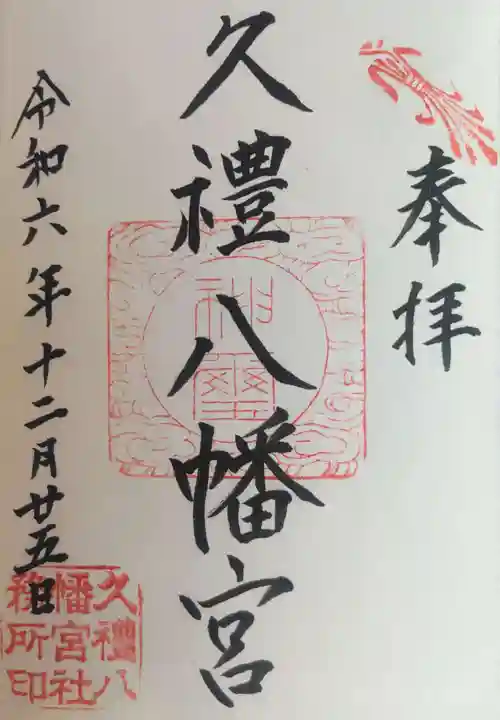 奉拝
久禮八幡宮
神璽
令和六年十二月廿五日
久禮八
幡宮社
務所印